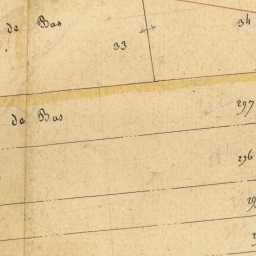 de Bas
34
33
de Bas
297
296